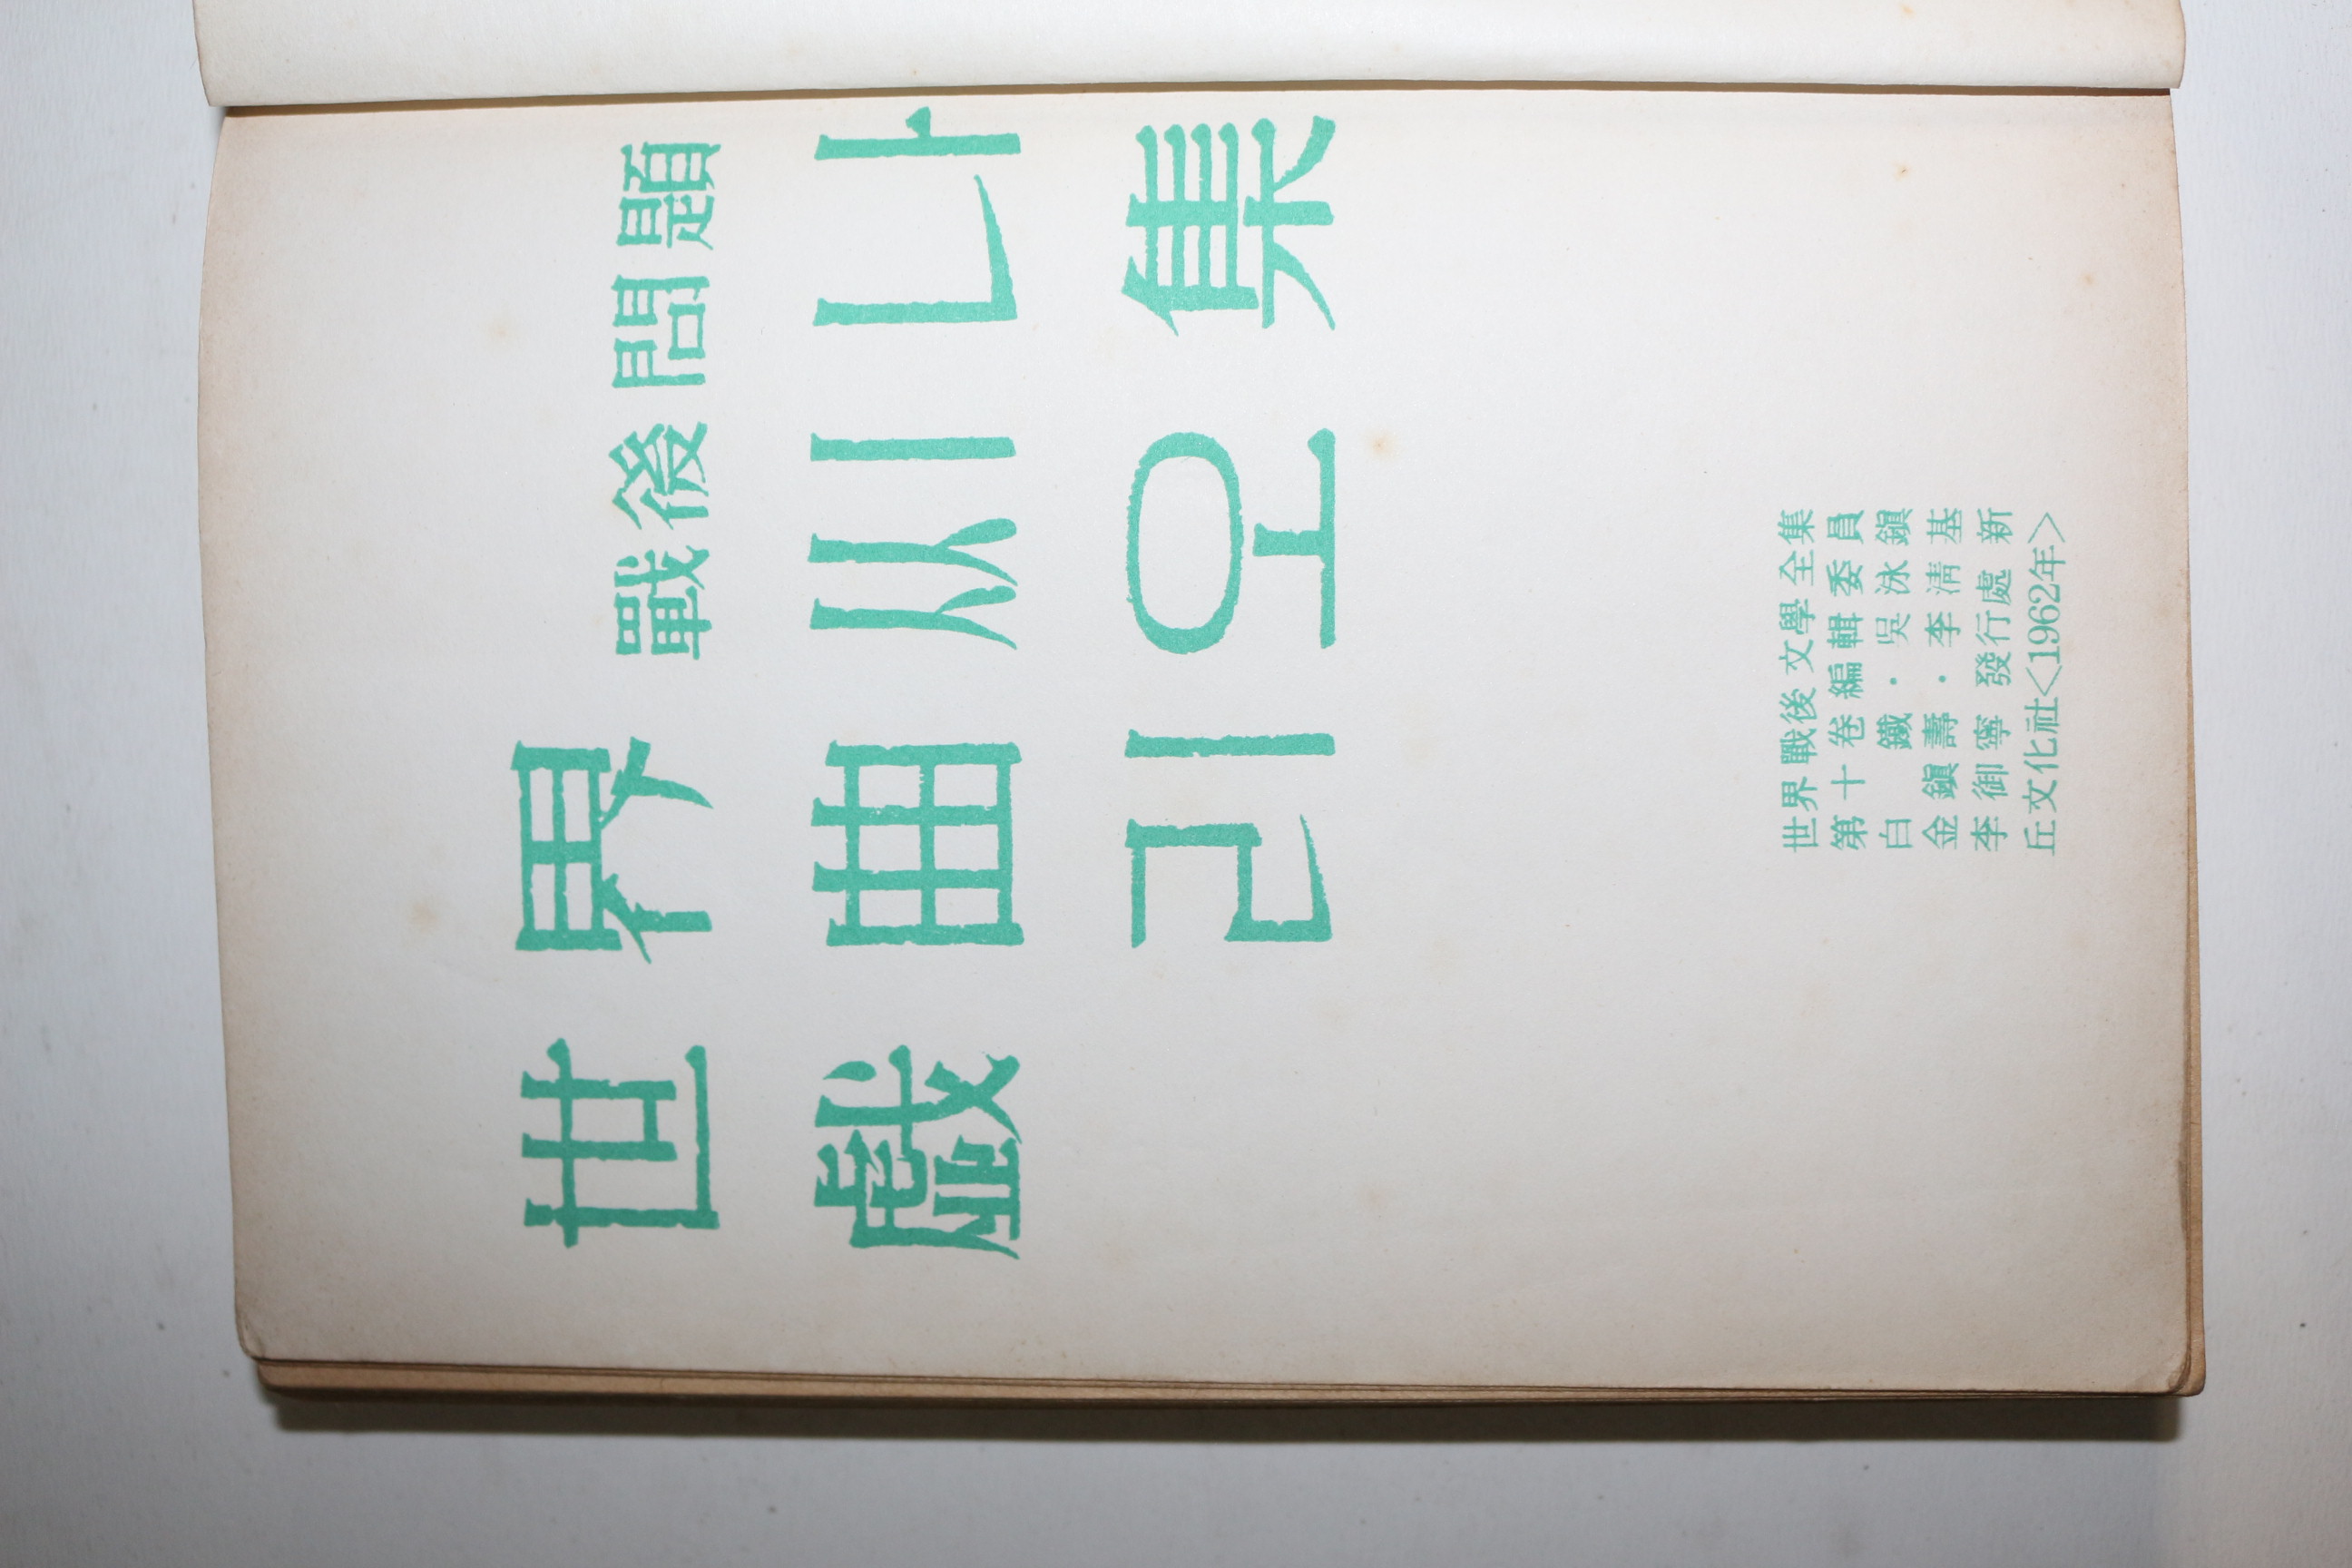 世界戰後問題
戱曲씨나
리오集
世界戰後文學全集
第十卷編輯委員
白鐵·吳泳鎭
金鎭壽·李淸基
李御寧 發行處 新
丘文化社<1962年>